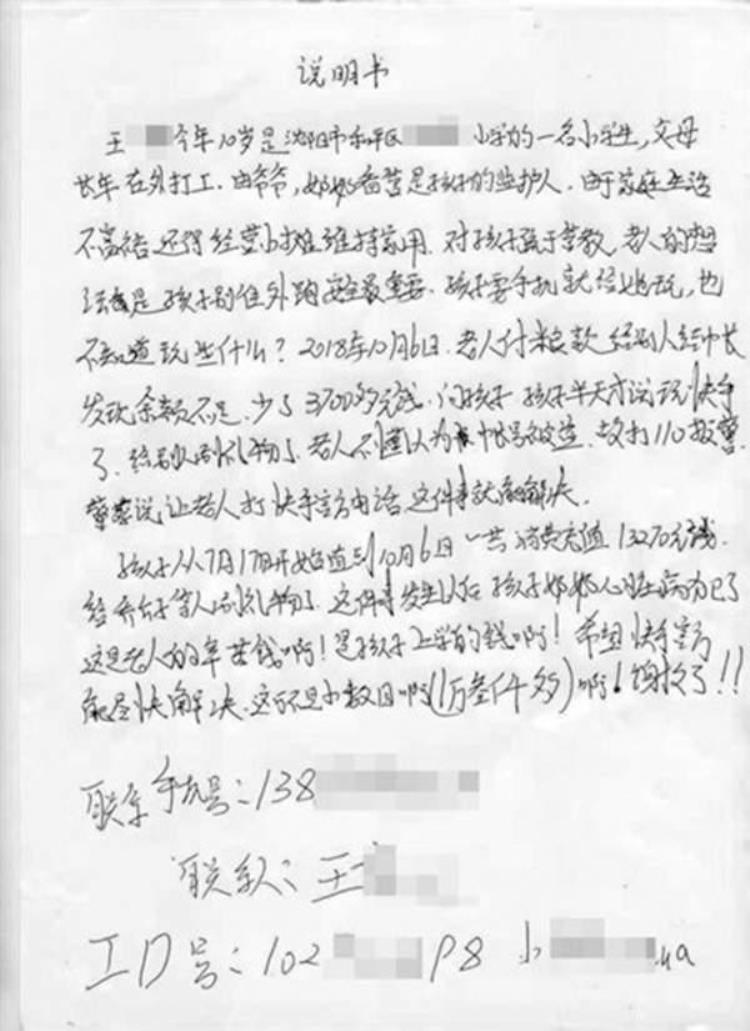 说明书
王 今年10岁是沈阳市和平区 小学的一名小学生,父母
长年在外打工.由爷爷,奶奶看管是孩子的监护人.由于家庭生活
不富裕还得经营小摊维持家用.对孩子疏于管教,老人的想
法就是孩子别往外跑安全最重要.孩子要手机就给她玩,也
不知道玩些什么?2018年10月6日.老人付粮款给别人结帐
发现余额不足.少了3700多元钱.问孩子孩子半天才说玩快手
了.给别人刷礼物了.老人不懂认为帐号被盗.故打110报警.
警察说让老人打快手官方电话这件事就能解决.
孩子从7月17日开始直到10月6日一共消费充值13270元钱.
给 等人刷礼物了.这件事发生以后孩子奶奶心脏病力已了
这是老人的辛苦钱啊!是孩子上学的钱啊!希望快手官方
能尽快解决.这可不是小数目啊(1万叁仟多)啊!谢谢了!!
联系手机号:138
联系人:王
ID号:102 P8 小 na